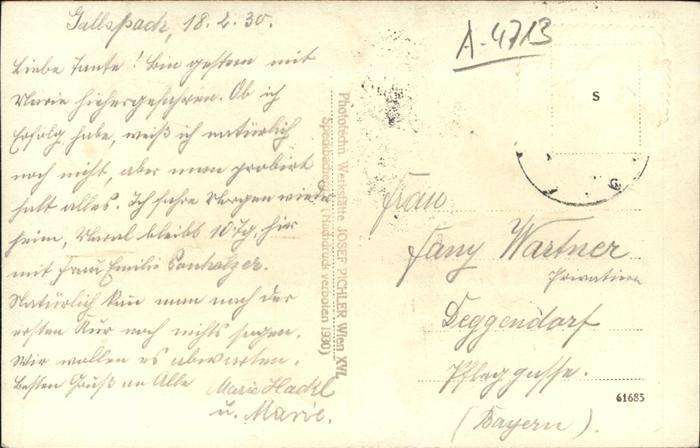 Gallspach, 18.2.30.
Liebe Tante! Bin gestern mit
Marie hiehergefahren. Ob ich
Erfolg habe, weiß ich natürlich
noch nicht, aber man probirt
halt alles. Ich fahre Morgen wieder
heim, bleibt 10 Tg. hier
mit Frau Emilie
Natürlich kan man nach der
ersten Kur noch nichts sagen.
Wir wollen es abwarten.
Besten Gruß an Alle
Marie Hackl
u. Marie.
Phototechn. Werkstätte JOSEF PICHLER Wien XVI.
(Nachdruck verboten 1930)
A-4713
S
Frau
Fany Wartner
Privatiere
Deggendorf
Pfleggasse.
(Bayern).
61685